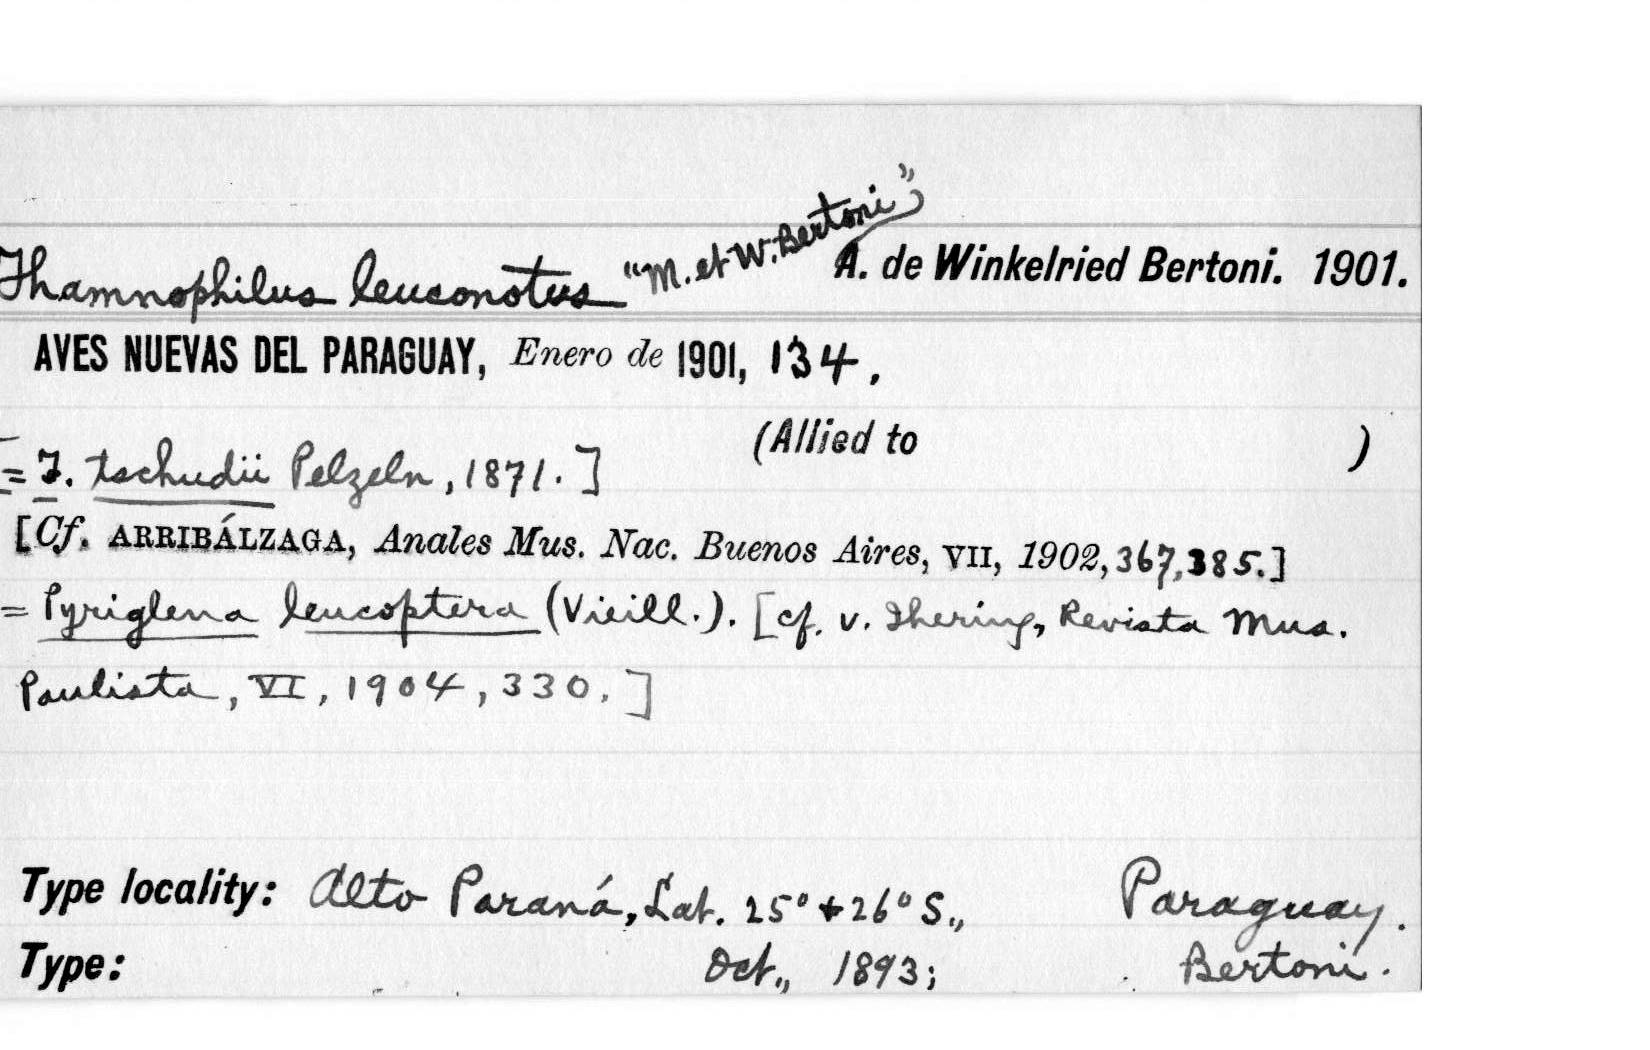 Thamnophilus leuconotus "M. et W. Bertoni" A. de Winkelried Bertoni. 1901.
AVES NUEVAS DEL PARAGUAY, Enero de 1901, 134.
(Allied to )
[= T. tschudii Pelzeln, 1871.]
[Cf. ARRIBÁLZAGA, Anales Mus. Nac. Buenos Aires, VII, 1902, 367, 385.]
= Pyriglena leucoptera (Vieill.). [cf. v. Ihering, Revista Mus.
Paulista, VI, 1904, 330.]
Type locality: Alto Paraná, Lat. 25° + 26° S., Paraguay.
Type: Oct., 1893; Bertoni.